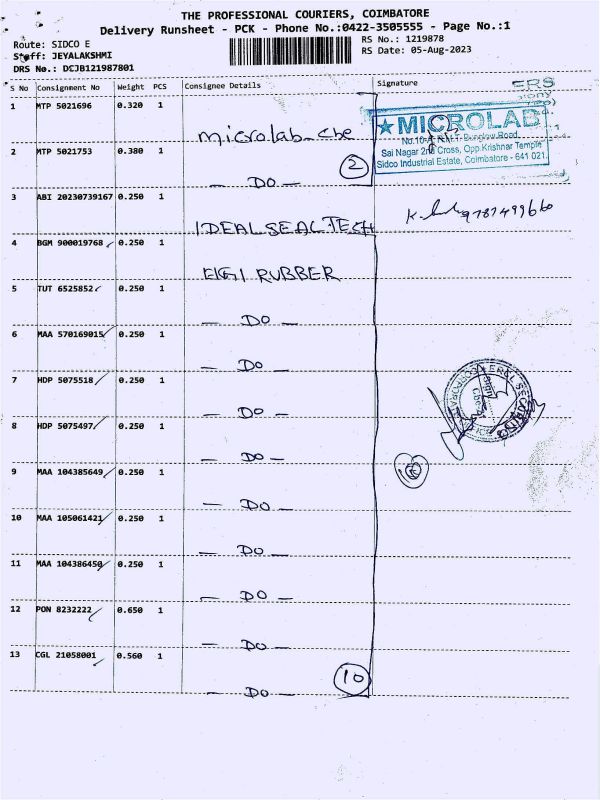 THE PROFESSIONAL COURIERS, COIMBATORE
Delivery Runsheet - PCK - Phone No.:0422-3505555 - Page No.:1
Route: SIDCO E
RS No.: 1219878
Staff: JEYALAKSHMI
RS Date: 05-Aug-2023
DRS No.: DCJB121987801
S No Consignment No Weight PCS Consignee Details Signature
1 MTP 5021696 0.320 1
microlab_cbe
★MICROLAB
Sai Nagar 2nd Cross, Opp.Krishnar Temple
Sidco Industrial Estate, Coimbatore - 641 021.
2 MTP 5021753 0.380 1
— DO — 2
3 ABI 20230739167 0.250 1
IDEAL SEAL TECH
9787499660
4 BGM 900019768 0.250 1
ELGI RUBBER
5 TUT 6525852 0.250 1
— DO —
6 MAA 570169015 0.250 1
— DO —
7 HDP 5075518 0.250 1
— DO —
8 HDP 5075497 0.250 1
— DO —
9 MAA 104385649 0.250 1
— DO —
10 MAA 105061421 0.250 1
— DO —
11 MAA 104386450 0.250 1
— DO —
12 PON 8232222 0.650 1
— DO —
13 CGL 21058001 0.560 1
— DO — 10